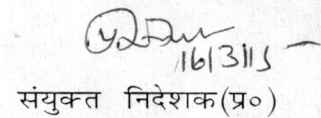 16/3/15
संयुक्त निदेशक(प्र०)